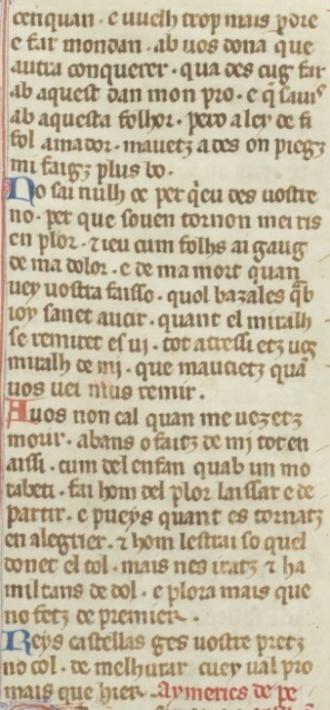 cenquan · e vuelh trop mais p̱dre
e far mondan · ab uos dona que
autra conquerer · qua des cug far
ab aquest dan mon pro · e q̄ sauis
ab aquesta folhor · pero a ley de fi
fol amador · mauetz ades on piegz
mi faigz plus bo ·
No sai nulh de per q̄eu des uostre
no · per que souen tornon mei ris
en plor · ⁊ ieu cum folhs ai gaug
de ma dolor · e de ma mort quan
vey uostra faisso · quol bazalesc q̄b
ioy sanet aucir · quant el miralh
se remiret es vi · tot atressi etz uos
miralh de mi · que maucietz quā
uos vei nius remir ·
A uos non cal quan me vezetz
mourir · abans o faitz de mi tot en
aissi · cum del enfan quab un mo
rabeti · fai hom del plor laissar e de
partir · e pueys quant es tornatz
en alegrier · ⁊ hom lestrai so quel
donet el tol · mais nes iratz ⁊ ha
mil tans de dol · e plora mais que
no fetz de premier ·
Reys castellas ges uostre pretz
no col · de melhurar cuey ual pro
mais que hier · Aymerics de pe